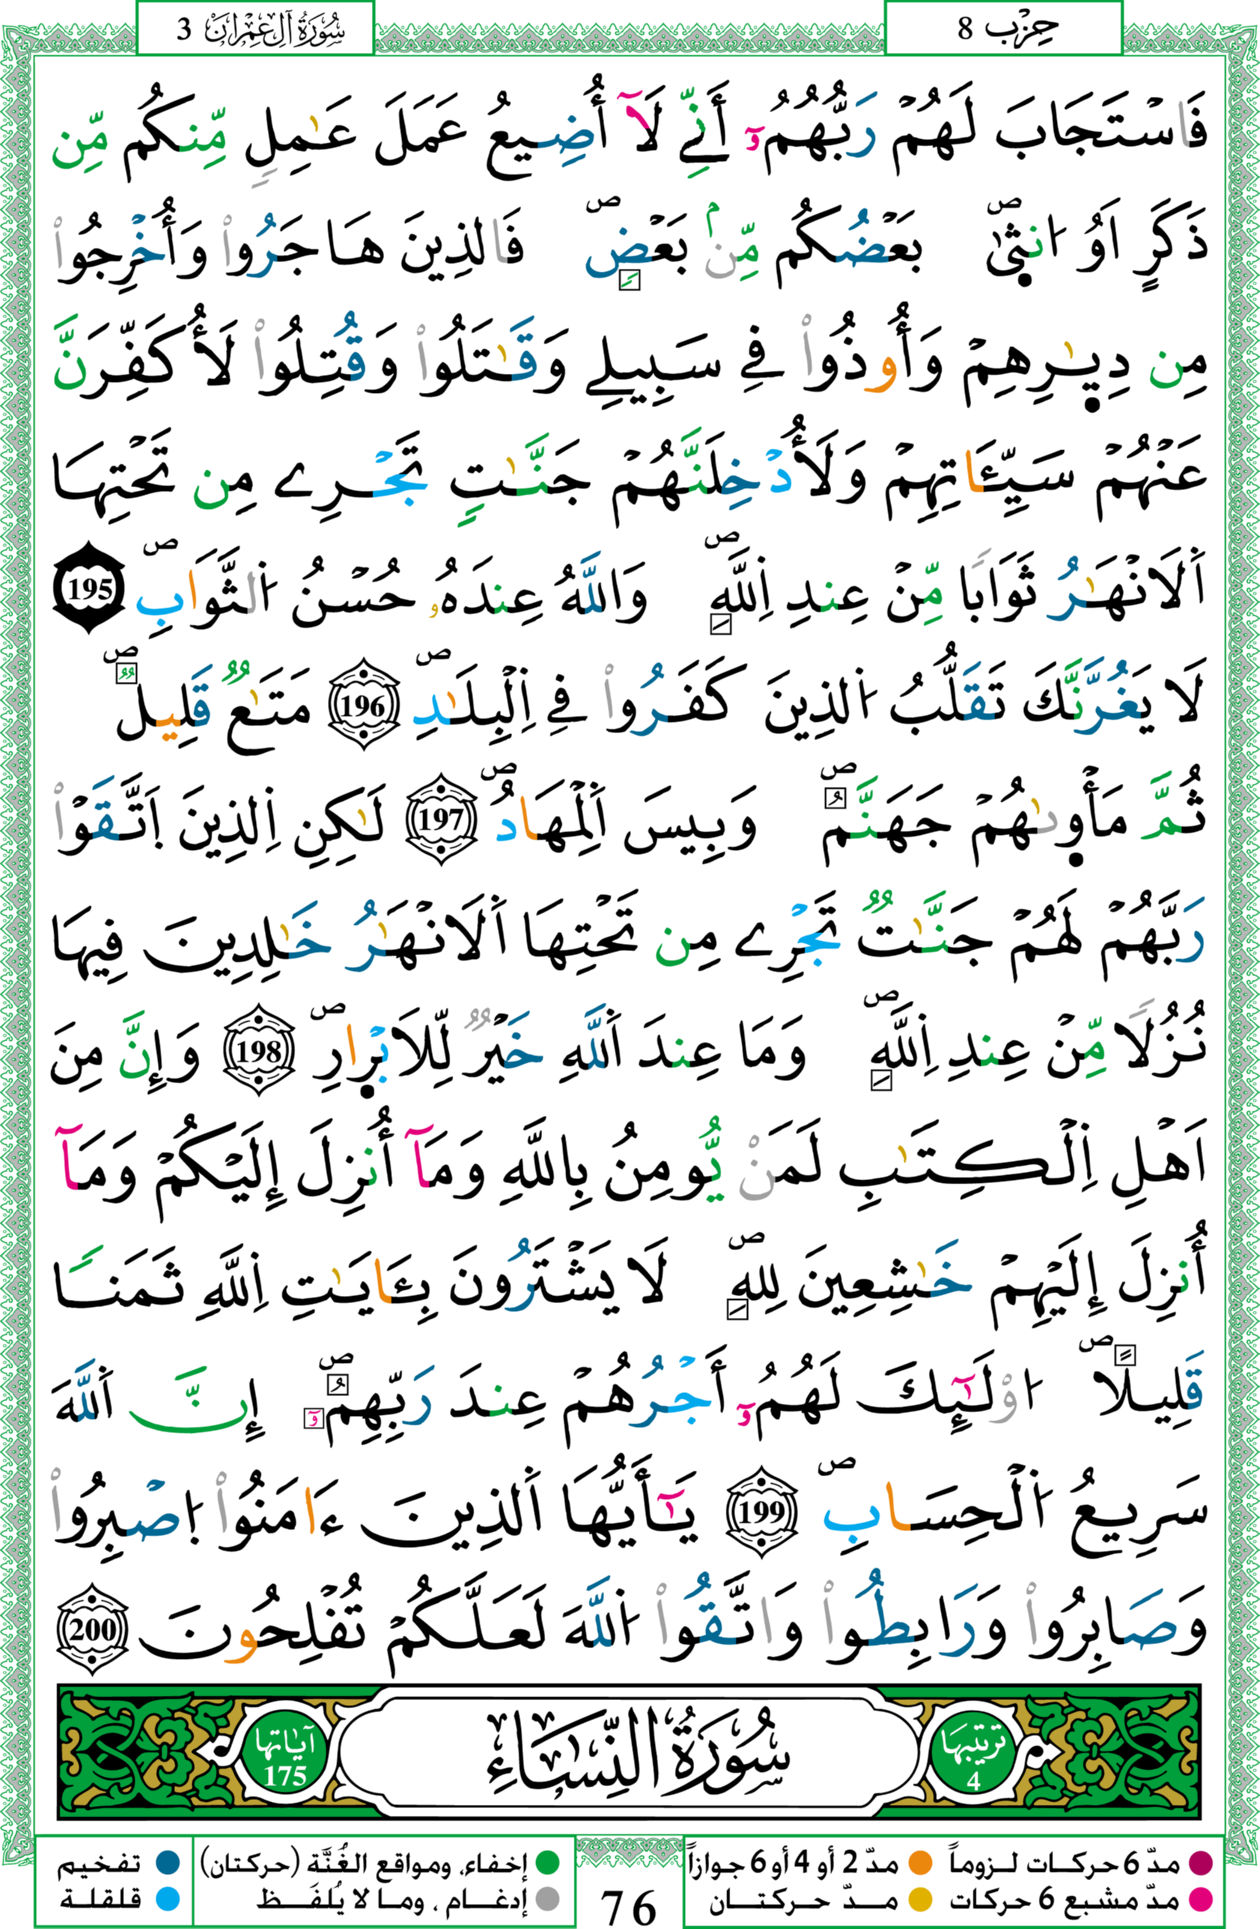 حِزْب 8
سُورَةُ آلِ عِمْرَانَ 3
فَاسْتَجَابَ لَهُمْ رَبُّهُمُۥٓ أَنِّے لَآ أُضِيعُ عَمَلَ عَٰمِلٖ مِّنكُم مِّن
ذَكَرٍ اَوُ ا۟نث۪يٰۖ بَعْضُكُم مِّنۢ بَعْضٖۖ فَالذِينَ هَاجَرُواْ وَأُخْرِجُواْ
مِن دِيٰ۪رِهِمْ وَأُوذُواْ فِے سَبِيلِے وَقَٰتَلُواْ وَقُتِلُواْ لَأُكَفِّرَنَّ
عَنْهُمْ سَيِّـَٔاتِهِمْ وَلَأُدْخِلَنَّهُمْ جَنَّٰتٖ تَجْرِے مِن تَحْتِهَا
اَ۬لَانْهَٰرُ ثَوَابًا مِّنْ عِندِ اِ۬للَّهِۖ وَاللَّهُ عِندَهُۥ حُسْنُ ا۬لثَّوَابِۖ 195
لَا يَغُرَّنَّكَ تَقَلُّبُ ا۬لذِينَ كَفَرُواْ فِے اِ۬لْبِلَٰدِۖ 196 مَتَٰعٞ قَلِيلٞۖ
ثُمَّ مَأْو۪يٰهُمْ جَهَنَّمُۖ وَبِيسَ اَ۬لْمِهَادُۖ 197 لَٰكِنِ اِ۬لذِينَ اَ۪تَّقَوْاْ
رَبَّهُمْ لَهُمْ جَنَّٰتٞ تَجْرِے مِن تَحْتِهَا اَ۬لَانْهَٰرُ خَٰلِدِينَ فِيهَا
نُزُلًا مِّنْ عِندِ اِ۬للَّهِۖ وَمَا عِندَ اَ۬للَّهِ خَيْرٞ لِّلَابْر۪ارِۖ 198 وَإِنَّ مِنَ
اَهْلِ اِ۬لْكِتَٰبِ لَمَنْ يُّومِنُ بِاللَّهِ وَمَآ أُنزِلَ إِلَيْكُمْ وَمَآ
أُنزِلَ إِلَيْهِمْ خَٰشِعِينَ لِلهِۖ لَا يَشْتَرُونَ بِـَٔايَٰتِ اِ۬للَّهِ ثَمَنًا
قَلِيلًاۖ ا۟وْلَٰٓئِكَ لَهُمُۥٓ أَجْرُهُمْ عِندَ رَبِّهِمُۥٓۖ إِنَّ اَ۬للَّهَ
سَرِيعُ ا۬لْحِسَابِۖ 199 يَٰٓأَيُّهَا اَ۬لذِينَ ءَامَنُواْ ا۪صْبِرُواْ
وَصَابِرُواْ وَرَابِطُواْ وَاتَّقُواْ ا۬للَّهَ لَعَلَّكُمْ تُفْلِحُونَ 200
ترتيبها 4
سُورَةُ النِّسَاءِ
آياتها 175
مدّ 6 حركات لـزوماً مدّ 2 أو 4 أو 6 جوازاً
مدّ مشبع 6 حركات مـدّ حـركتـان
76
إخفاء، ومواقع الغُنَّة (حركتان) تفخيم
إدغـام ، ومـا لا يُلفَـظ قلقلة